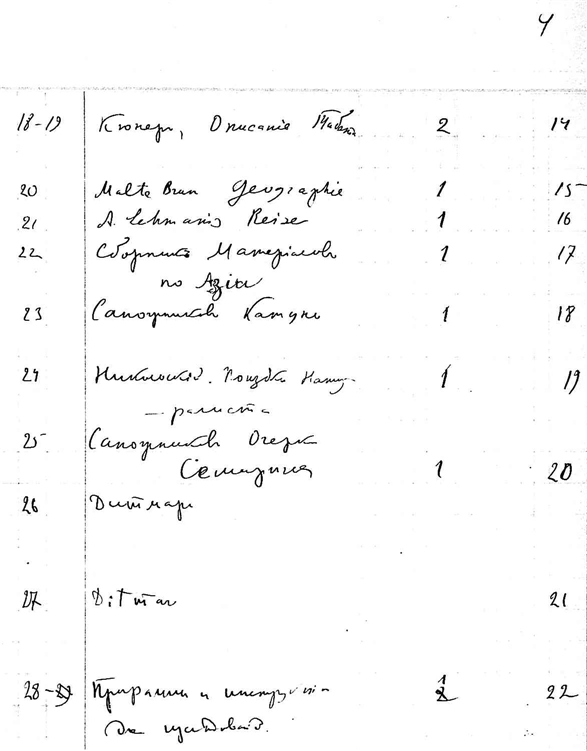 4
18-19 Кюнер, Описание Тибета 2 14
20 Malte Brun Geographie 1 15
21 A. Lehmanns Reise 1 16
22 Сборникъ Матеріаловъ 1 17
по Азіи
23 Сапожниковъ Катунь 1 18
24 Никольскій. Поездка Нату- 1 19
-ралиста
25 Сапожниковъ Очерки
Семиречья 1 20
26 Дитмаръ
27 Ditmar 21
28- Программы и инструкціи 1 22
для